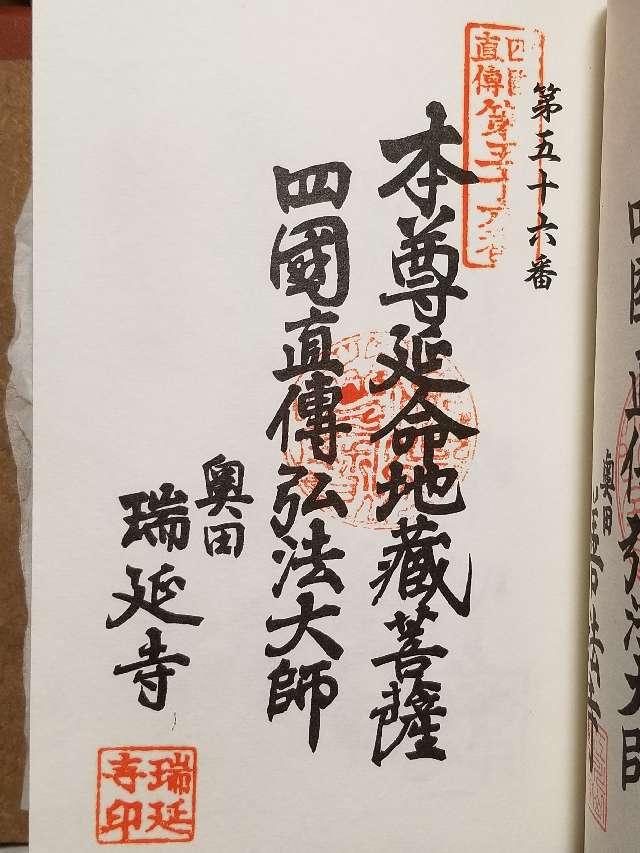 第五十六番
四国
直傳
第五十六番
本尊延命地藏菩薩
四國直傳弘法大師
奥田
瑞延寺
瑞延
寺印
奥田